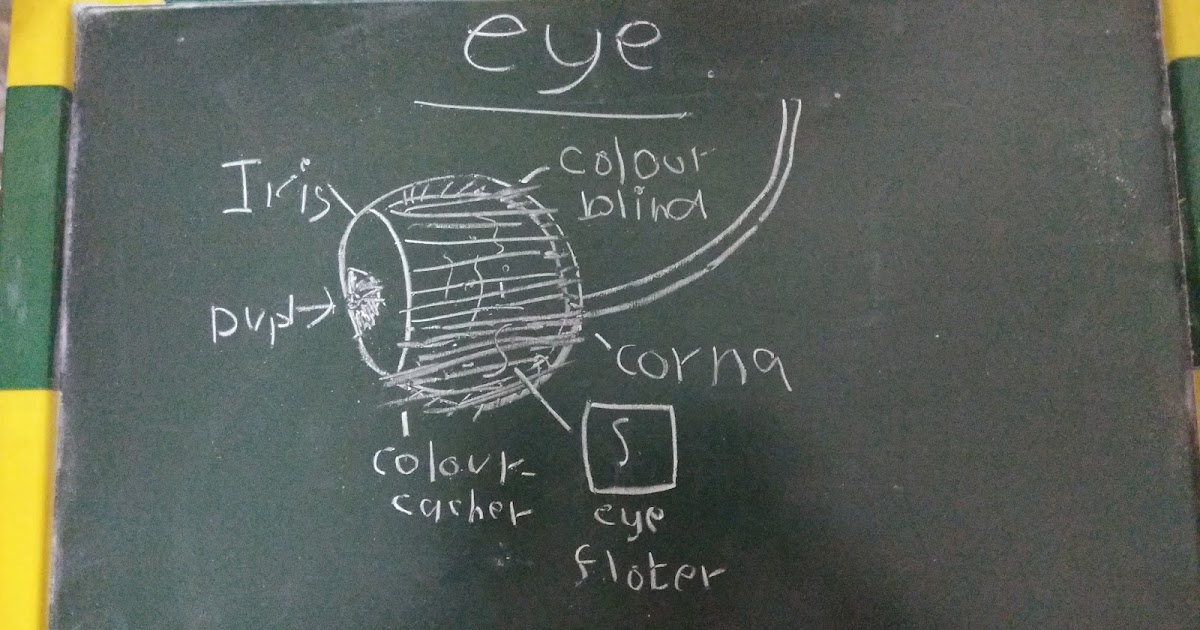 eye
Iris
colour
blind
pupl
corna
colour-
cacher
eye
floter